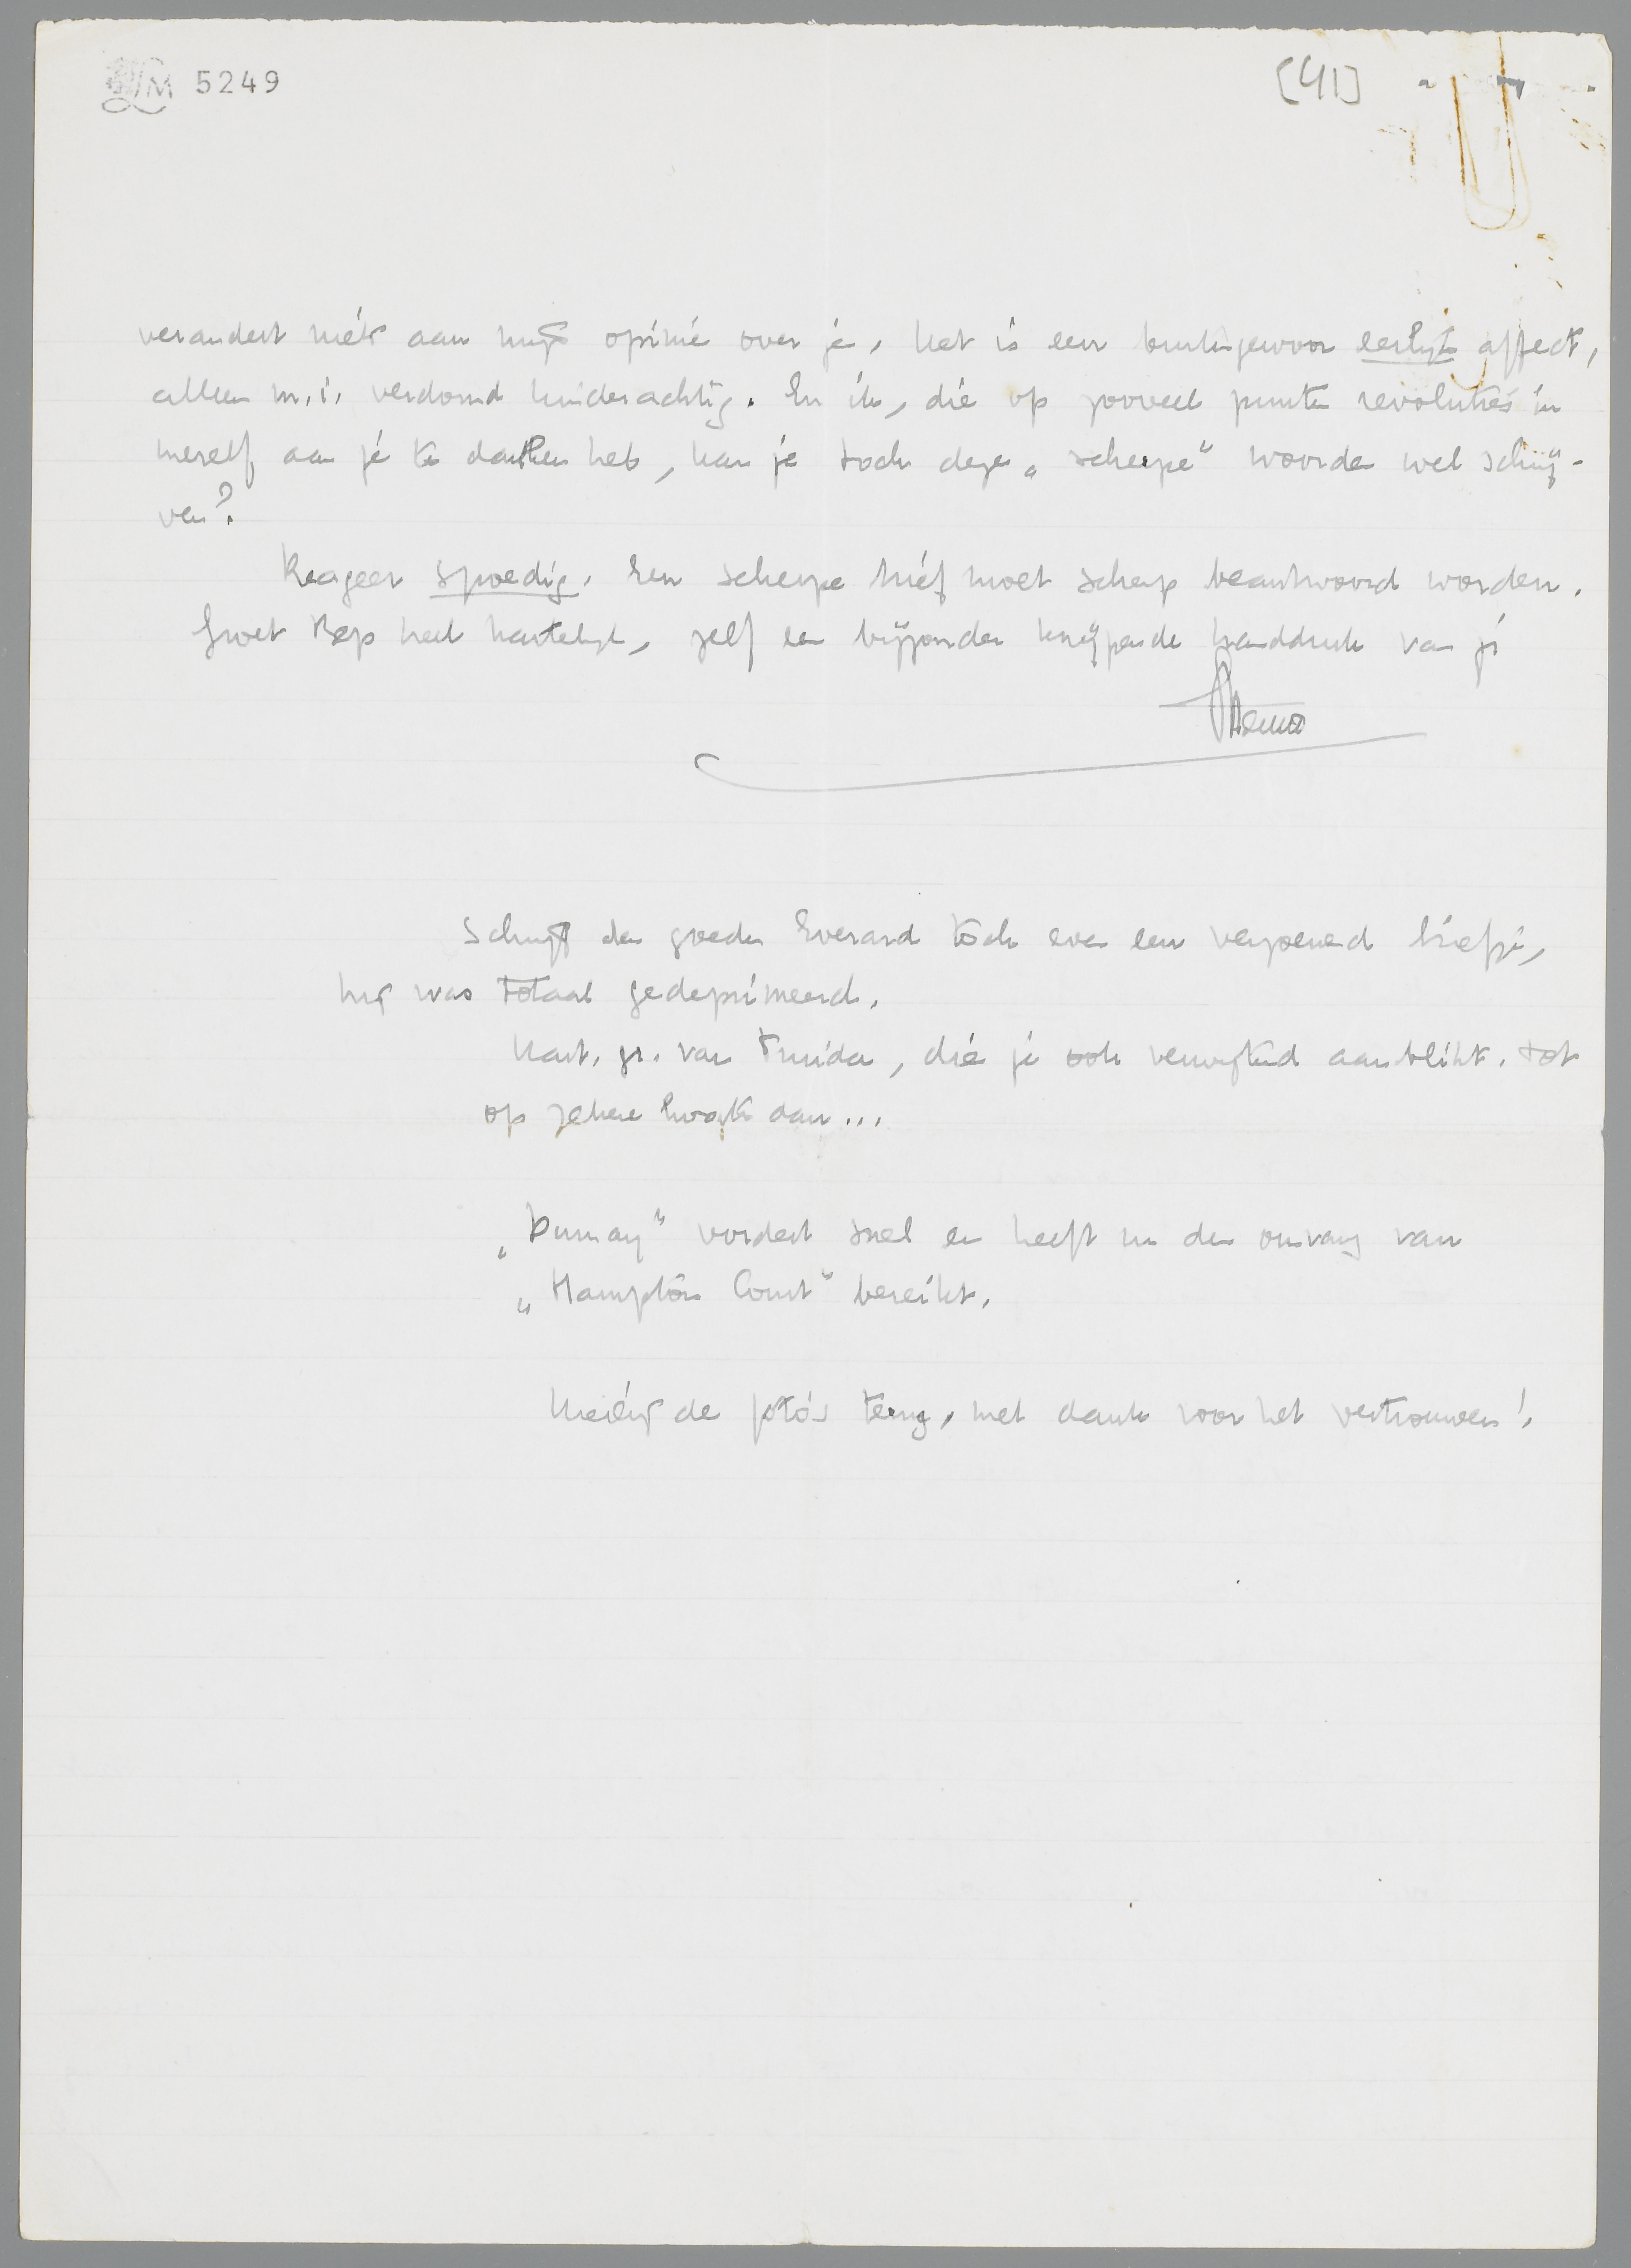 LM 5249
[41]
verandert niets aan mijn opinie over je, het is een buitengewoon eerlijk affect,
alleen m.i. verdomd kinderachtig. En ik, die op zooveel punten revoluties in
mezelf aan je te danken heb, kan je toch deze „scherpe” woorden wel schrij-
ven?
Reageer spoedig. Een scherpe brief moet scherp beantwoord worden.
Groet Bep heel hartelijk, zelf een bijzonder knijpende handdruk van je
Menno
Schrijf den goeden Everard toch even een verzoenend briefje,
hij was totaal gedeprimeerd.
Hart. gr. van Truida, die je ook verwijtend aanblikt. Tot
op zekere hoogte dan...
„Dumay” vordert snel en heeft nu den omvang van
„Hampton Court” bereikt.
Hierbij de foto's terug, met dank voor het vertrouwen!